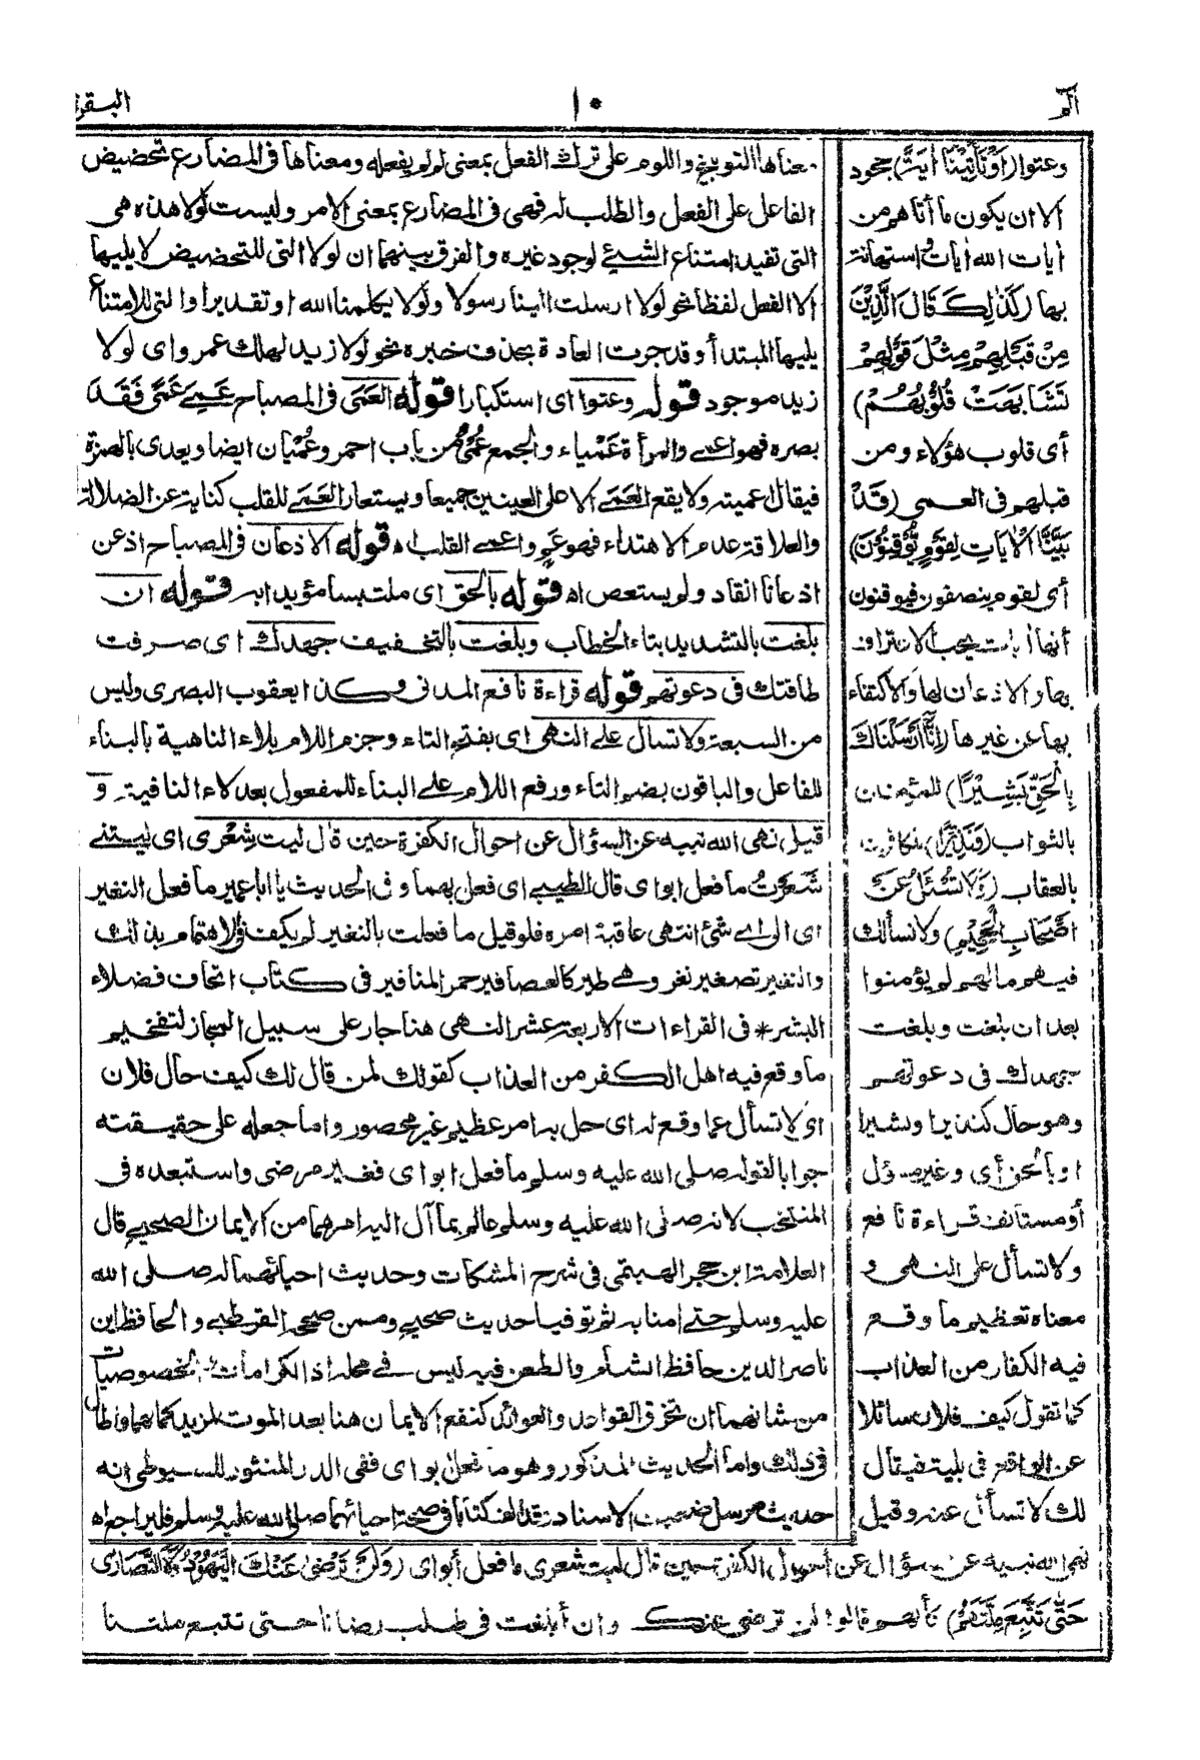 الم
١٠
البقر
وعتوا (أَوْ تَأْتِيْنَا اٰيَةٌ) جحود
الا ان يكون ما أتاهم من
ايات الله ايات واستهانة
بها (كَذٰلِكَ قَالَ الَّذِيْنَ
مِنْ قَبْلِهِمْ مِثْلَ قَوْلِهِمْ
تَشَابَهَتْ قُلُوْبُهُمْ)
أى قلوب هؤلاء ومن
قبلهم فى العمى (قَدْ
بَيَّنَّا الْاٰيَاتِ لِقَوْمٍ يُّوْقِنُوْنَ)
أى لقوم ينصفون فيوقنون
أنها أيات يجب الاعتراف
بها والاذعان لها والاكتفاء
بها عن غيرها (إِنَّا أَرْسَلْنَاكَ
بِالْحَقِّ بَشِيْرًا) للمؤمنين
بالثواب (وَنَذِيْرًا) للكافرين
بالعقاب (وَلَا تُسْئَلُ عَنْ
اَصْحَابِ الْجَحِيْمِ) ولا نسألك
فيهم مالهم لم يؤمنوا
بعد ان بلغت وبلغت
جهدك فى دعوتهم
وهو حال كنذيرا وبشيرا
او بالحق أى وغير مسؤل
أو مستأنف قراءة نافع
ولا تسأل على النهى و
معناه تعظيم ما وقع
فيه الكفار من العذاب
كما تقول كيف فلان سائلا
عن الواقع فى بلية فيقال
لك لا تسأل عنه وقيل
معناها التوبيخ واللوم على ترك الفعل بمعنى لم لم يفعله ومعناها فى المضارع تحضيض
الفاعل على الفعل والطلب له فهى فى المضارع بمعنى الامر وليست لولا هذه هى
التى تفيد امتناع الشيئ لوجود غيره والفرق بينهما ان لولا التى للتحضيض لا يليها
الا الفعل لفظا نحو لولا ارسلت الينا رسولا ولولا يكلمنا الله او تقديرا والتى للامتناع
يليها المبتدأ وقد جرت العادة بحذف خبره نحو لولا زيد لهلك عمرو اى لولا
زيد موجود قوله وعتوا اى استكبارا قوله العمى فى المصباح عمى عمى فقد
بصره فهو اعمى والمرأة عمياء والجمع عمى من باب احمر وعميان ايضا ويعدى بالهمزة
فيقال عميته ولا يقع العمى الا على العينين جميعا ويستعار العمى للقلب كناية عن الضلالة
والعلاقة عدم الاهتداء فهو عم واعمى القلب اه قوله الاذعان فى المصباح اذعن
اذعانا انقاد ولم يستعص اه قوله بالحق اى ملتبسا مؤيدا به قوله ان
بلغت بالتشديد بتاء الخطاب وبلغت بالتخفيف جهدك اى صرفت
طاقتك فى دعوتهم قوله قراءة نافع المدنى وكذا يعقوب البصرى وليس
من السبعة ولا تسأل على النهى اى بفتح التاء وجزم اللام بلاء الناهية بالبناء
للفاعل والباقون بضم التاء ورفع اللام على البناء للمفعول بعد لاء النافية و
قيل نهى الله نبيه عن السؤال عن احوال الكفرة حين قال ليت شعرى اى ليتنى
شعرت ما فعل ابواى قال الطيبى اى فعل بهما وفى الحديث يا ابا عمير ما فعل النغير
اى الى اى شئ انتهى عاقبة امره فلو قيل ما فعلت بالنغير لم يكف فى الاهتمام بذلك
والنغير تصغير نغر وهى طير كالعصافير حمر المناقير فى كتاب اتحاف فضلاء
البشر * فى القراءات الاربعة عشر النهى هنا جار على سبيل المجاز لتفخيم
ما وقع فيه اهل الكفر من العذاب كقولك لمن قال لك كيف حال فلان
اى لا تسأل عما وقع له اى حل به امر عظيم غير محصور واما جعله على حقيقته
جوابا لقوله صلى الله عليه وسلم ما فعل ابواى فغير مرضى واستبعده فى
المنتخب لانه صلى الله عليه وسلم عالم بما آل اليه امرهما من الايمان الصحيح قال
العلامة ابن حجر الهيتمى فى شرح المشكات وحديث احيائهما له صلى الله
عليه وسلم حتى امنا به ثم توفيا حديث صحيح وممن صححه القرطبى والحافظ ابن
ناصر الدين حافظ الشام والطعن فيه ليس فى محله اذ الكرامات والخصوصيات
من شانهما ان تخرق القواعد والعوائد كنفع الايمان هنا بعد الموت لمزيد كمالهما واطال
فى ذلك واما الحديث المذكور وهو ما فعل ابواى ففى الدر المنثور للسيوطى انه
حديث مرسل ضعيف الاسناد وقد الف كتابا فى صحة احيائهما صلى الله عليه وسلم فليراجع اه
نهى الله نبيه عن سؤال عن أحوال الكفرة حين قال ليت شعرى ما فعل أبواى (وَلَنْ تَرْضٰى عَنْكَ الْيَهُوْدُ وَلَا النَّصَارٰى
حَتّٰى تَتَّبِعَ مِلَّتَهُمْ) كأنهم قالوا لن نرضى عنك وان أبلغت فى طلب رضانا حتى تتبع ملتنا